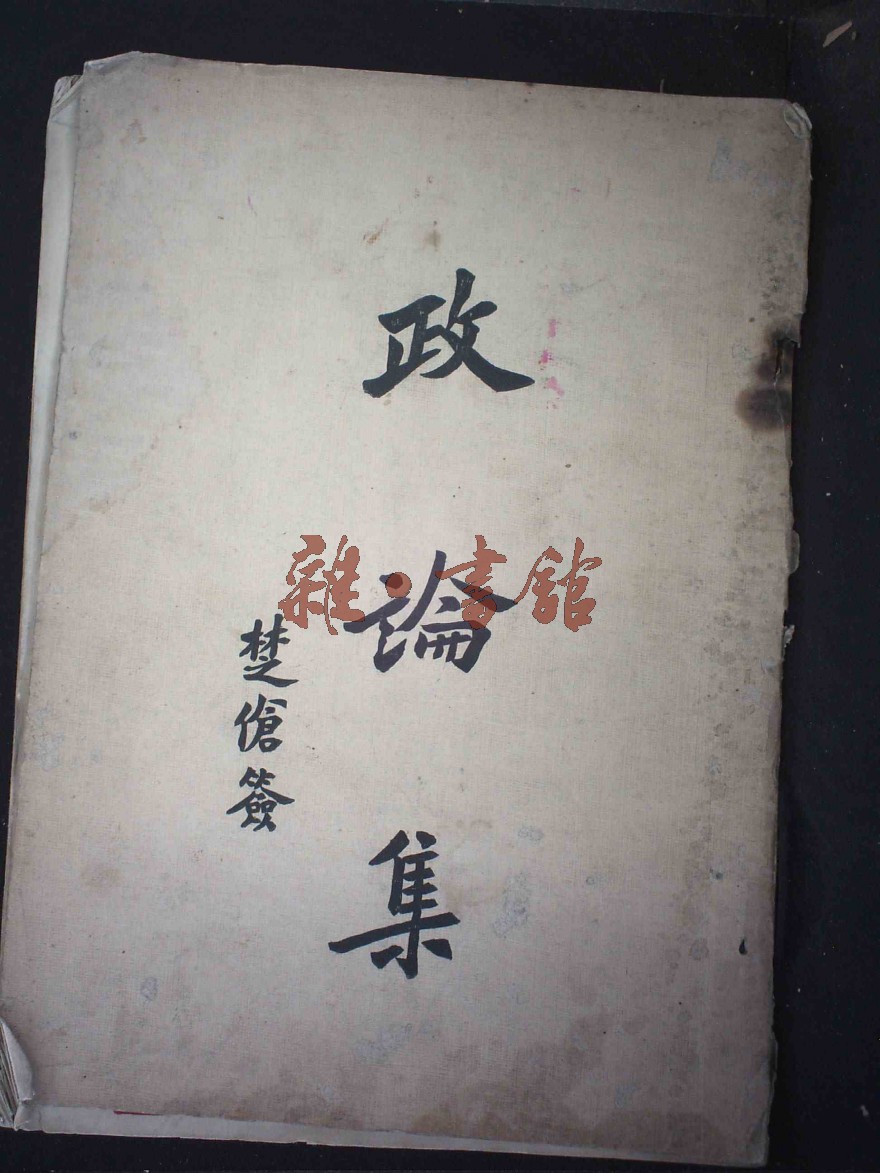 政論集
楚傖簽
雜·書館